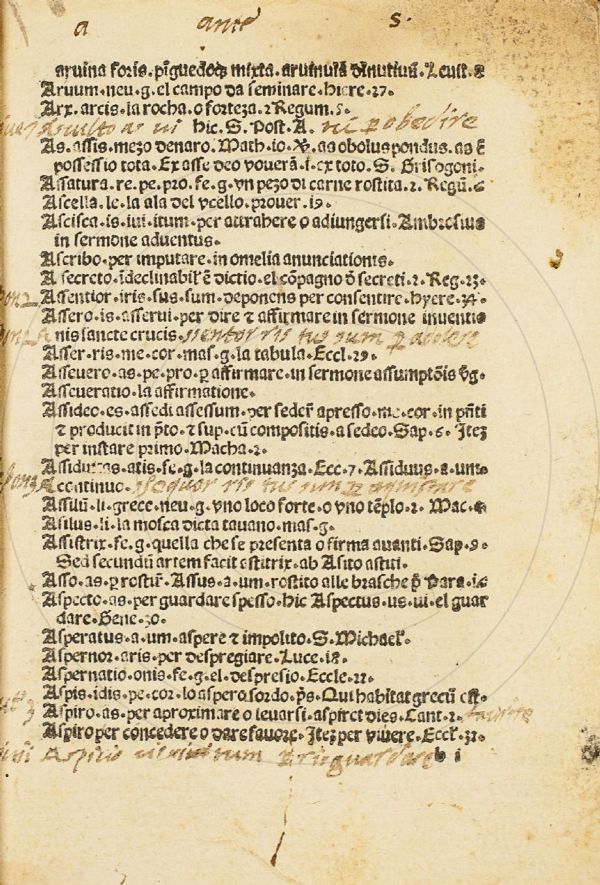 a ante s.
aruina foris. pīguedo mixta. aruinulā dīnutiuū. Leuit. 8
Aruum. neu. g. el campo da seminare. hiere. 27.
Arx. arcis. la rocha. o forteza. 2 Regum. 5.
Asculto as ui hic. S. Post. A. p obedire
As. assis. mezo denaro. Math. io. obolus pondus.
possessio tota. Ex asse deo vouerā. i. ex toto. S. Grisogoni.
Assatura. re. pe. pro. fe. g. vn pezo di carne rostita. 2. Regū. 6
Ascella. le. la ala del vcello. prouer. 19.
Ascisca. is. iui. itum. per attrahere o adiungersi. Ambrosius
in sermone aduentus.
Ascribo. per imputare. in omelia anunciationis.
A secreto. īdeclinabil' ē dictio. el cōpagno ō secreti. 2. Reg. 23.
Assentior. iris. sus. sum. deponens per consentire. hyere. 34.
Assero. is. asserui. per dire ⁊ affirmare in sermone inuentio
nis sancte crucis. ssentor ris tus sum p
Asser. ris. me. cor. mas. g. la tabula. Eccl. 29.
Asseuero. as. pe. pro. ꝑ affirmare. in sermone assumptōis ꝟg.
Asseueratio. la affirmatione.
Assideo. es. assedi assessum. per seder apresso. me. cor. in pn̄ti
⁊ producit in p̄to. ⁊ sup. cū compositis. a sedeo. Sap. 6. Itez
per instare primo. Macha. 2.
Assiduitas. atis. fe. g. la continuanza. Ecc. 7. Assiduus. a. um.
continuo. ssequor ris tus sum p aquistare
Assilū. li. grece. neu. g. vno loco forte. o vno tēplo. 2. Mac. 4
Asilus. li. la mosca dicta tauano. mas. g.
Assistrix. fe. g. quella che se presenta o firma auanti. Sap. 9.
Sed secundū artem facit astitrix. ab Asito astiti.
Asso. as. ꝑ rostir. Assus. a. um. rostito alle brasche p̄. Para. i.
Aspecto. as. per guardare spesso. hic Aspectus. us. ui. el guar
dare. Gene. 20.
Asperatus. a. um. aspere ⁊ impolito. S. Michael'.
Aspernor. aris. per despregiare. Luce. 18.
Aspernatio. onis. fe. g. el. despresio. Eccle. 22.
Aspis. idis. pe. cor. lo aspero. sordo. ps. Qui habitat grecū est.
Aspiro. as. per aproximare o leuarsi. aspiret dies. Cant. 2.
Aspiro per concedere o dare fauore. Itez per viuere. Eccl'. 31.
Aspicio p riguardare b i